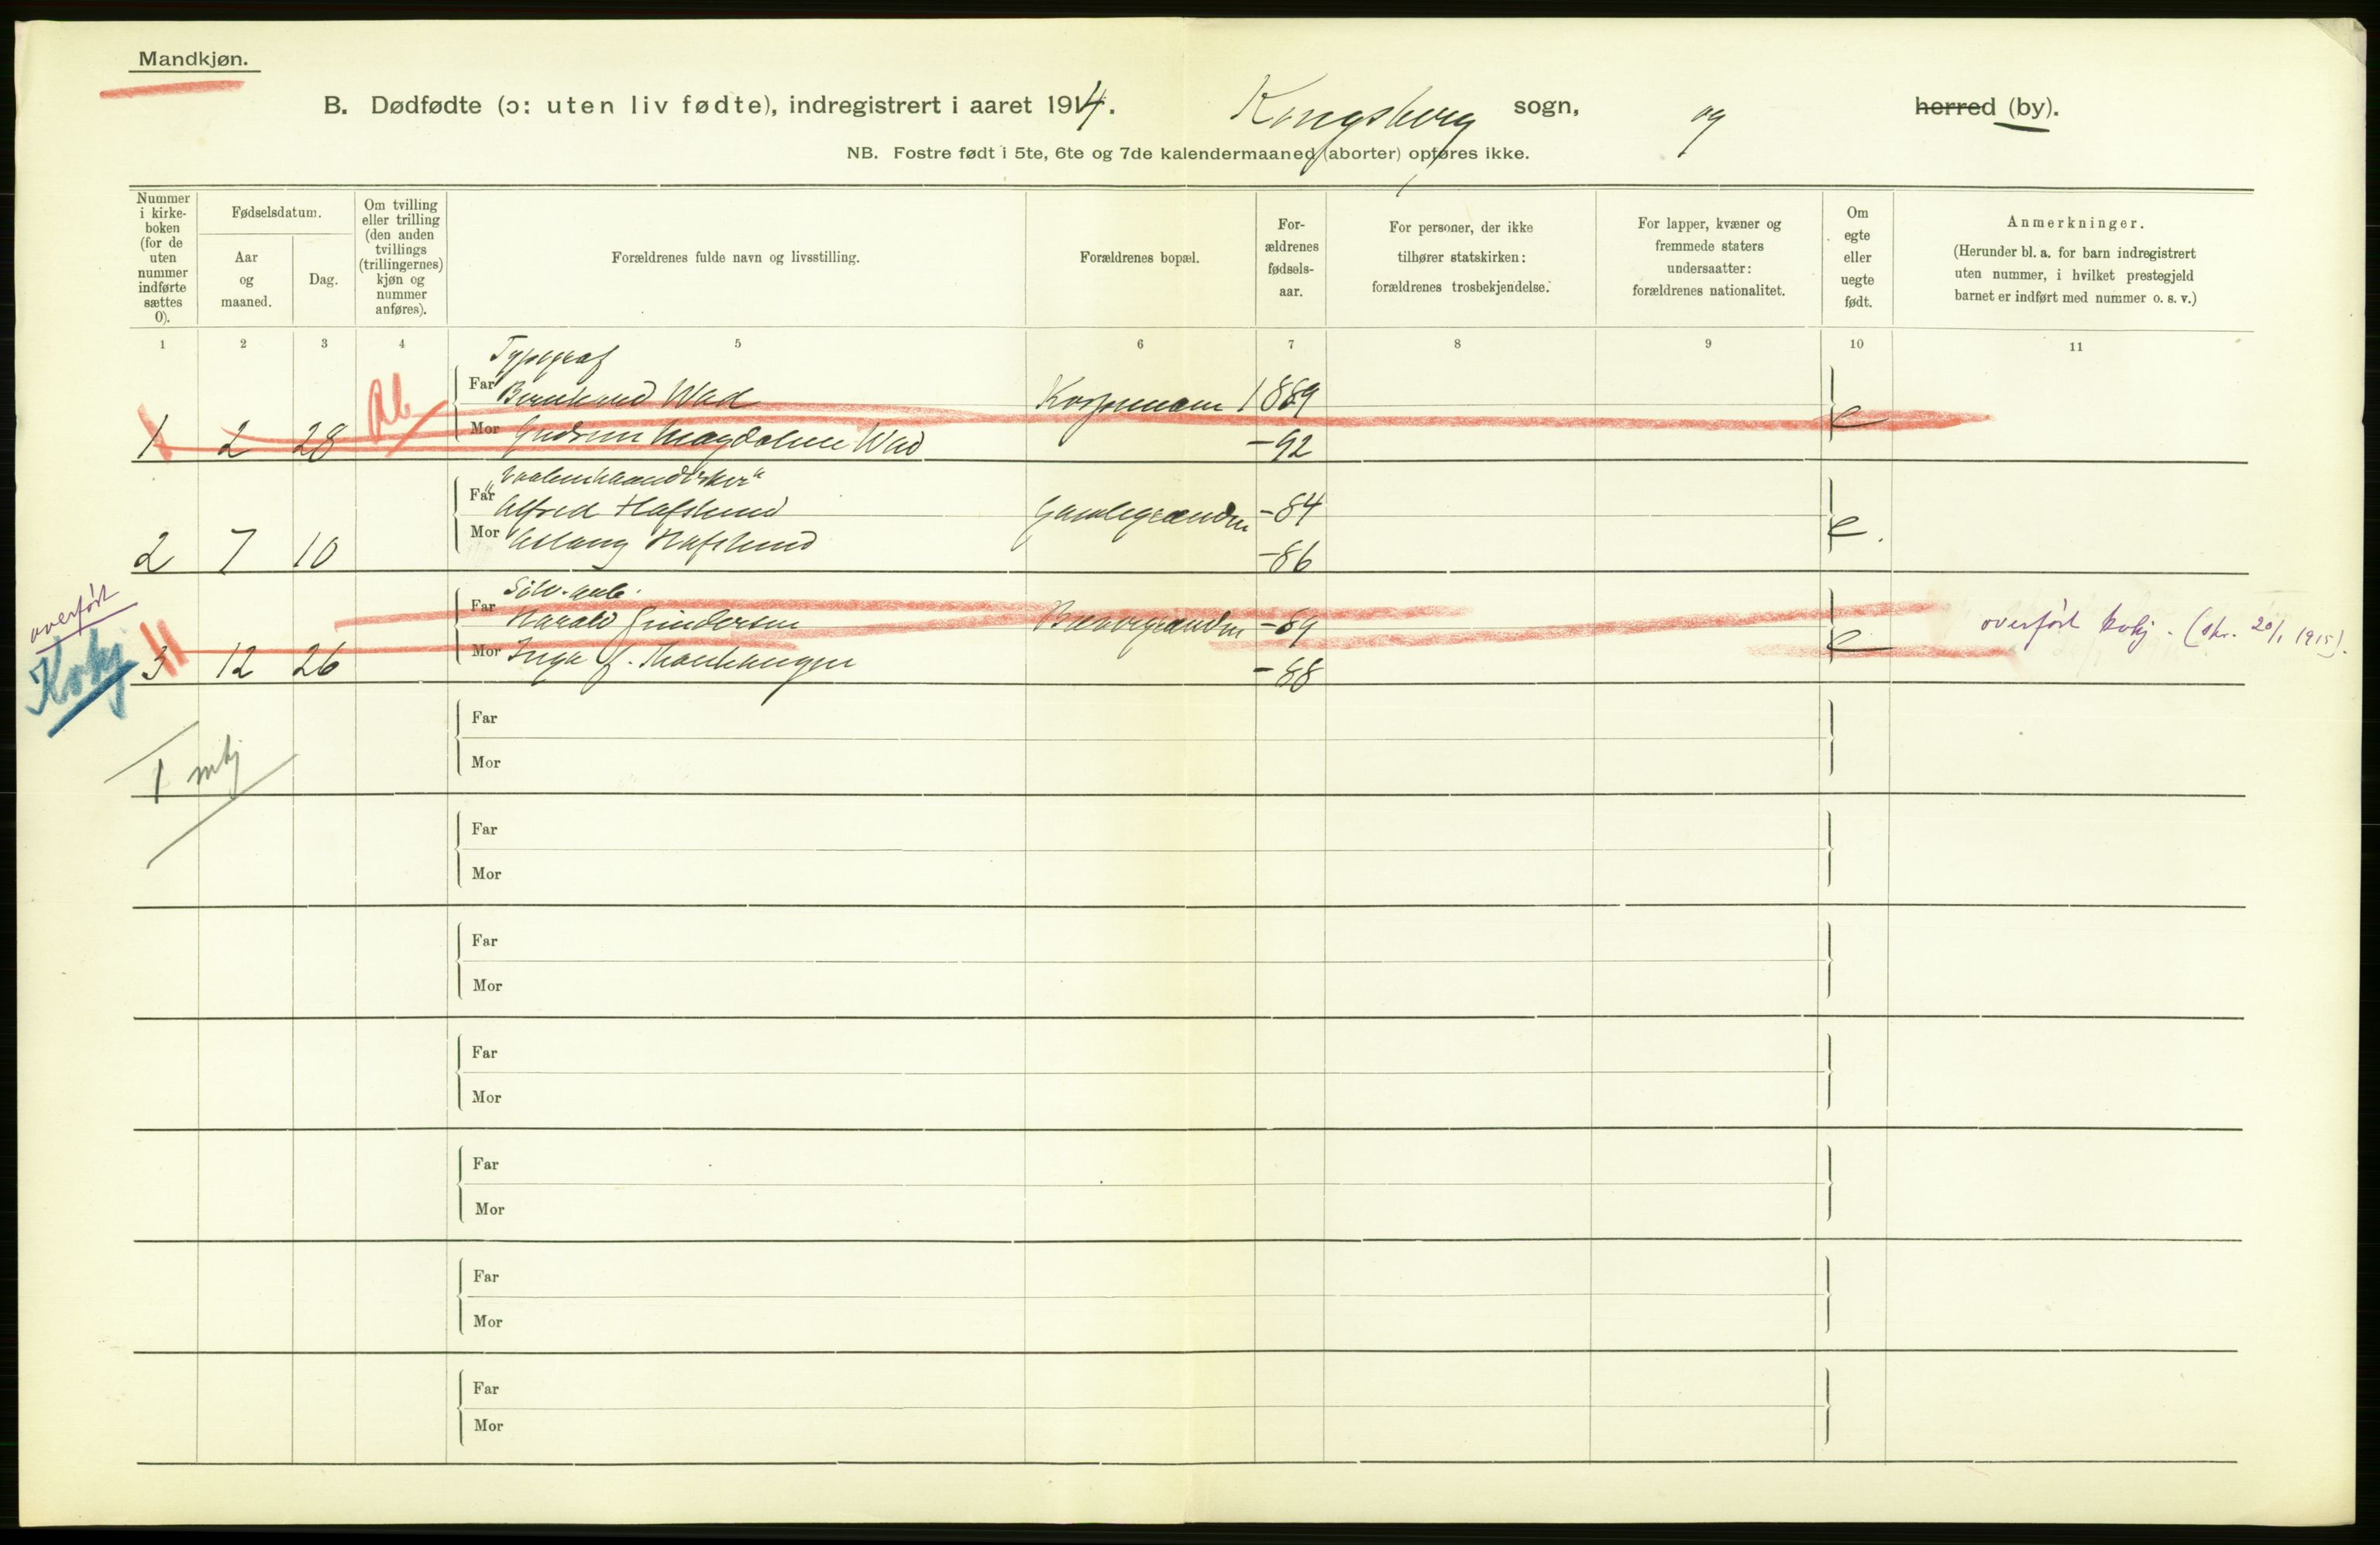 Mandkjøn.
B. Dødfødte (ɔ: uten liv fødte), indregistrert i aaret 1914. Kongsberg sogn, og herred (by).
NB. Fostre født i 5te, 6te og 7de kalendermaaned (aborter) opføres ikke.
Nummer i kirke-boken (for de uten nummer indførte sættes 0).
Fødselsdatum.
Aar og maaned.
Dag.
Om tvilling eller trilling (den anden tvillings (trillingernes) kjøn og nummer anføres).
Forældrenes fulde navn og livsstilling.
Forældrenes bopæl.
For-ældrenes fødsels-aar.
For personer, der ikke tilhører statskirken: forældrenes trosbekjendelse.
For lapper, kvæner og fremmede staters undersaatter: forældrenes nationalitet.
Om egte eller uegte født.
Anmerkninger.
(Herunder bl. a. for barn indregistrert uten nummer, i hvilket prestegjeld barnet er indført med nummer o. s. v.)
1 2 3 4 5 6 7 8 9 10 11
Typograf
Far Bernhard Wad 1889
Mor Gudrun Magdalene Wad -92
1 2 28 Ab e
Far Alfred Hafslund -84
Mor Aslaug Hafslund -86
2 7 10 e.
Sølv. arb.
Far Harald Gundersen -89
Mor Inga f. -88
overført
Kvkj
3 12 26 e overført kvkj. (skr. 20/1 1915).
Far
1 mkj
Mor
Far
Mor
Far
Mor
Far
Mor
Far
Mor
Far
Mor
Far
Mor